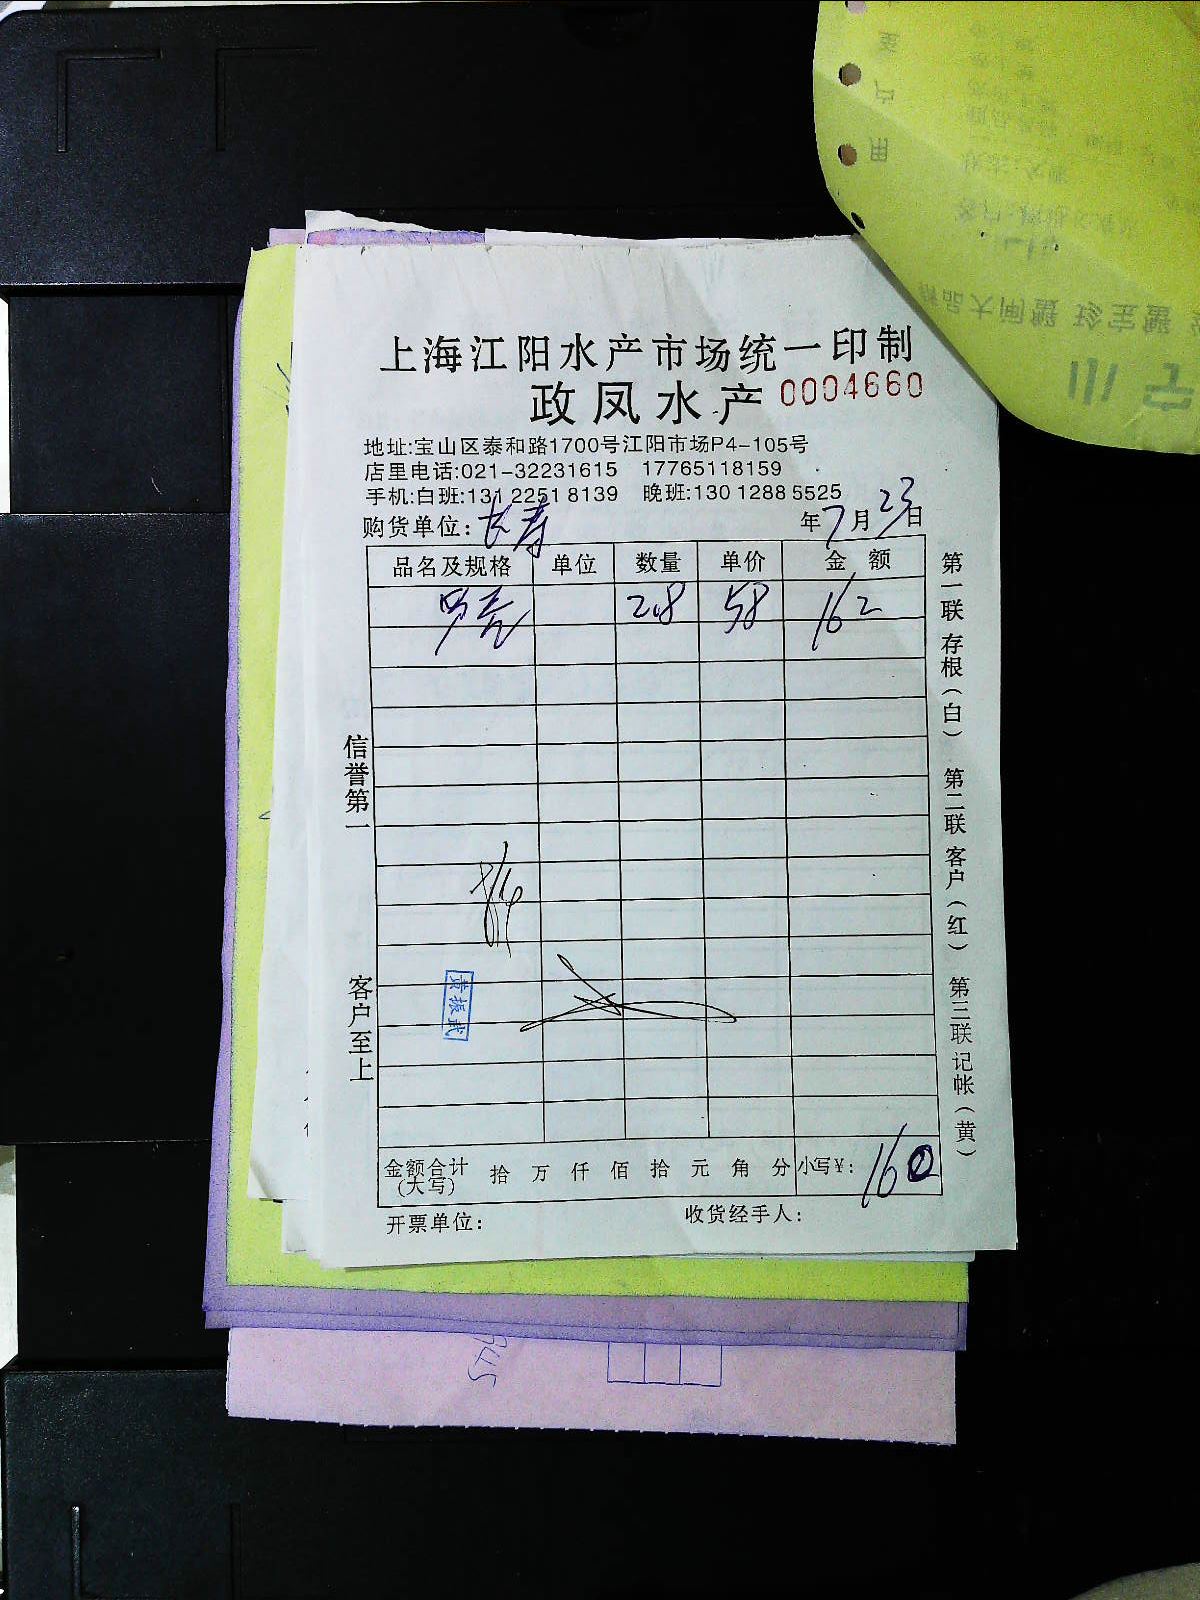 上海江阳水产市场统一印制
政凤水产 0004660
地址:宝山区泰和路1700号江阳市场P4-105号
店里电话:021-32231615 17765118159
手机:白班:131 2251 8139 晚班:130 1288 5525
购货单位: 长寿 年7月23日
品名及规格 单位 数量 单价 金额
2.8 58 162
信誉第一
客户至上
黄振武
第一联存根(白) 第二联客户(红) 第三联记帐(黄)
金额合计(大写) 拾 万 仟 佰 拾 元 角 分 小写¥: 160
开票单位: 收货经手人:
客户用
大闸蟹 珍宝蟹